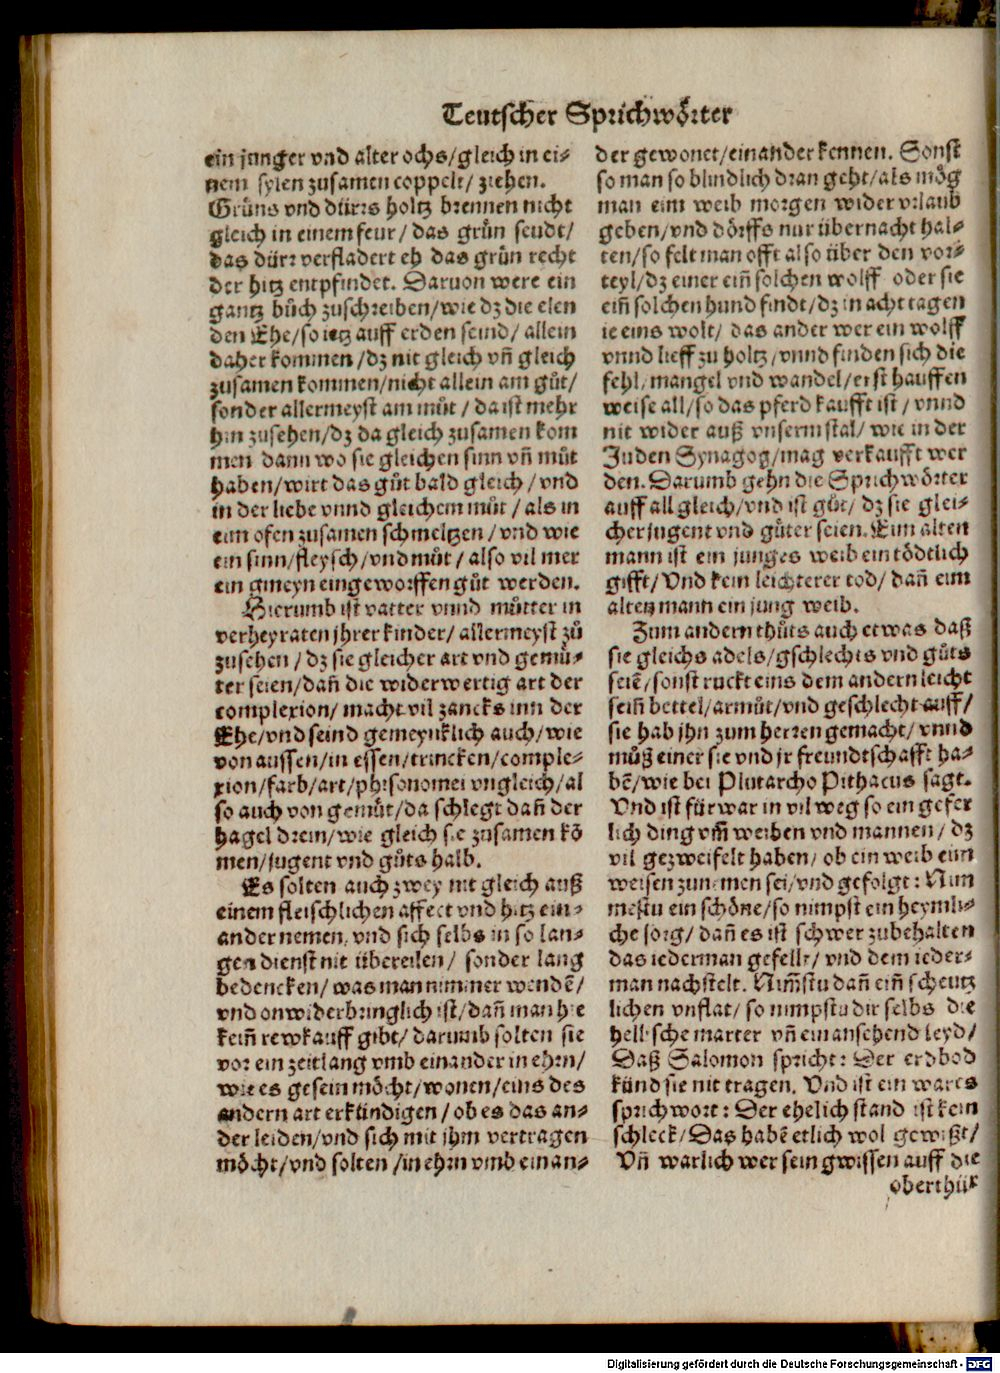 Teutscher Sprichwörter
ein junger vnd alter ochs/gleich in ei-
nem sylen zusamen coppelt/ ziehen.
Grüns vnd dürrs holtz brennen nicht
gleich in einem feur/ das grün seudt/
das dürr verfladert eh das grün recht
der hitz entpfindet. Daruon were ein
gantz bůch zuschreiben/wie dz die elen
den Ehe/so ietz auff erden seind/ allein
daher kommen/dz nit gleich vñ gleich
zusamen kommen/nicht allein am gůt/
sonder allermeyst am můt/ da ist mehr
hin zusehen/dz da gleich zusamen kom
men dann wo sie gleichen sinn vñ můt
haben/wirt das gůt bald gleich/ vnd
in der liebe vnnd gleichem můt/ als in
eim ofen zusamen schmeltzen/vnd wie
ein sinn/fleysch/vnd můt/ also vil mer
ein gmeyn eingeworffen gůt werden.
Hierumb ist vatter vnnd můtter in
verheyraten jhrer kinder/ allermeyst zů
zusehen/dz sie gleicher art vnd gemü-
ter seien/dañ die widerwertig art der
complexion/ macht vil zancks inn der
Ehe/vnd seind gemeynklich auch/wie
von aussen/in essen/trincken/comple-
xion/farb/art/phisonomei vngleich/al
so auch von gemüt/da schlegt dañ der
hagel drein/wie gleich sie zusamen kō
men/jugent vnd gůts halb.
Es solten auch zwey nit gleich auß
einem fleischlichen affect vnd hitz ein-
ander nemen, vnd sich selbs in so lan-
gen dienst nit übereilen/ sonder lang
bedencken/was man nimmer wendē/
vnd onwiderbringlich ist/dañ man hie
keiñ rewkauff gibt/ darumb solten sie
vor ein zeitlang vmb einander in ehrn/
wie es gesein möcht/wonen/eins des
andern art erkündigen/ob es das an-
der leiden/vnd sich mit jhm vertragen
möcht/vnd solten/in ehrn vmb einan-
der gewonet/einander kennen. Sonst
so man so blindlich dran geht/als mög
man eim weib morgen wider vrlaub
geben/vnd dörffs nur übernacht hal-
ten/so felt man offt also über den vor-
teyl/dz einer eiñ solchen wolff oder sie
eiñ solchen hund findt/dz in acht tagen
ie eins wolt/ das ander wer ein wolff
vnnd lieff zu holtz/vnnd finden sich die
fehl/mangel vnd wandel/erst hauffen
weise all/so das pferd kaufft ist/vnnd
nit wider auß vnserm stal/ wie in der
Juden Synagog/mag verkaufft wer
den. Darumb gehn die Sprichwörter
auff all gleich/vnd ist gůt/ dz sie glei-
cher jugent vnd gůter seien. Eim alten
mann ist ein junges weib ein tödtlich
gifft/ Vnd kein leichterer tod/ dañ eim
alten mann ein jung weib.
Zum andern thůts auch etwas daß
sie gleichs adels/gschlechts vnd gůts
seiē/sonst ruckt eins dem andern leicht
seiñ bettel/armůt/vnd geschlecht auff/
sie hab jhn zum herren gemacht/vnnd
můß einer sie vnd jr freundtschafft ha-
bē/wie bei Plutarcho Pithacus sagt.
Vnd ist fürwar in vil weg so ein gefer
lich ding vm̃ weiben vnd mannen/ dz
vil gezweifelt haben/ ob ein weib eim
weisen zunemen sei/vnd gefolgt: Nim
mestu ein schöne/so nimpst ein heymli-
che sorg/ dañ es ist schwer zubehalten
das iederman gefellt/ vnd dem ieder-
man nachstelt. Nim̃stu dañ eiñ scheutz
lichen vnflat/ so nimpstu dir selbs die
hellische marter vñ ein ansehend leyd/
Daß Salomon spricht: Der erdbod
künd sie nit tragen. Vnd ist ein wares
sprichwort: Der ehelich stand ist kein
schleck/Das habē etlich wol gewißt/
Vñ warlich wer sein gwissen auff die
oberthür
Digitalisierung gefördert durch die Deutsche Forschungsgemeinschaft - DFG